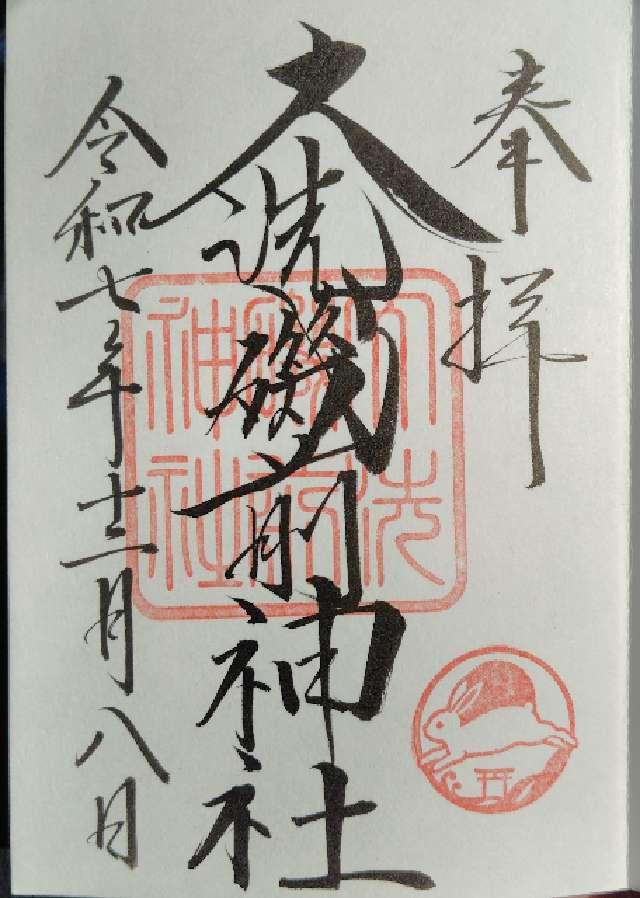 奉拝
大洗磯前神社
大洗磯前神社
令和七年十二月八日